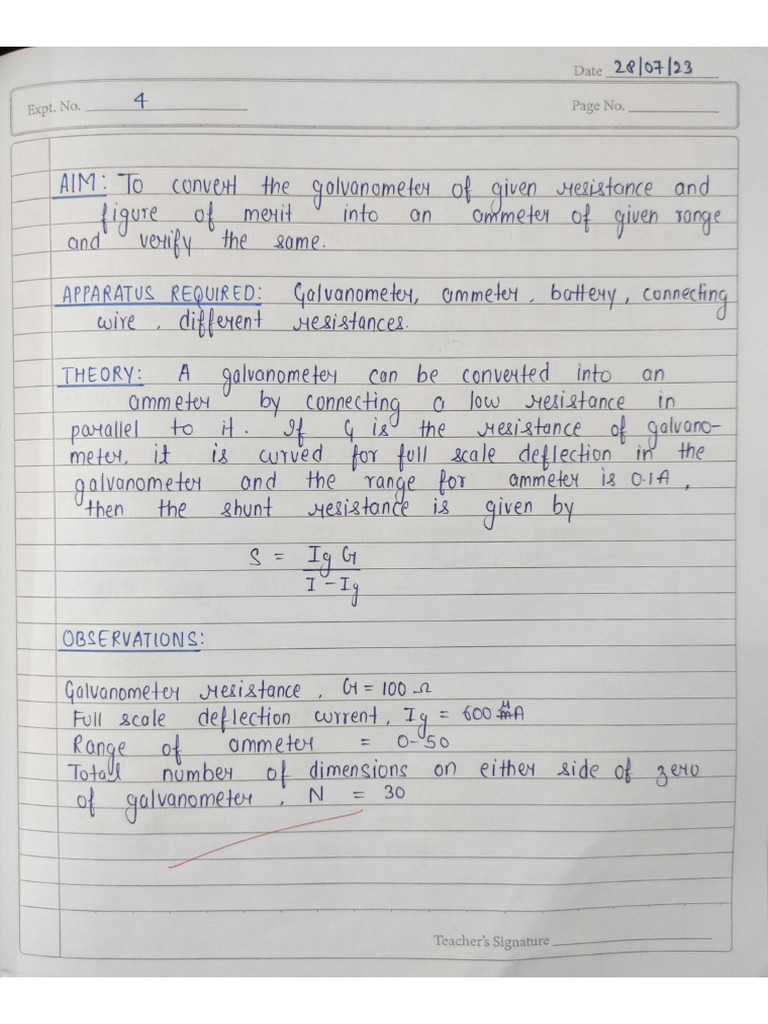 Date 28/07/23
Expt. No. 4
Page No.
AIM: To convert the galvanometer of given resistance and
figure of merit into an ammeter of given range
and verify the same.
APPARATUS REQUIRED: Galvanometer, ammeter, battery, connecting
wire, different resistances.
THEORY: A galvanometer can be converted into an
ammeter by connecting a low resistance in
parallel to it. If G is the resistance of galvano-
meter, it is curved for full scale deflection in the
galvanometer and the range for ammeter is 0.1A,
then the shunt resistance is given by
S = Ig G
I - Ig
OBSERVATIONS:
Galvanometer resistance, G = 100 Ω
Full scale deflection current, Ig = 600 μA
Range of ammeter = 0-50
Total number of dimensions on either side of zero
of galvanometer, N = 30
Teacher's Signature